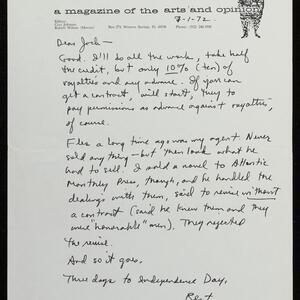 a magazine of the arts and opinion
Editors:
7-1-72.
Dear Jack—
Good. I'll do all the work, take half
the credit, but only 10% (ten) of
royalties and any advance. If you can
get a contract, will start, they to
pay permissions as advance against royalties,
of course.
Flea a long time ago was my agent. Never
sold anything — but then look what he
had to sell! I sold a novel to Atlantic
Monthly Press, though, and he handled the
dealings with them, said to revise without
a contract (said he knew them and they
were "honorable" men). They rejected
the revise.
And so it goes.
Three days to Independence Day,
Best